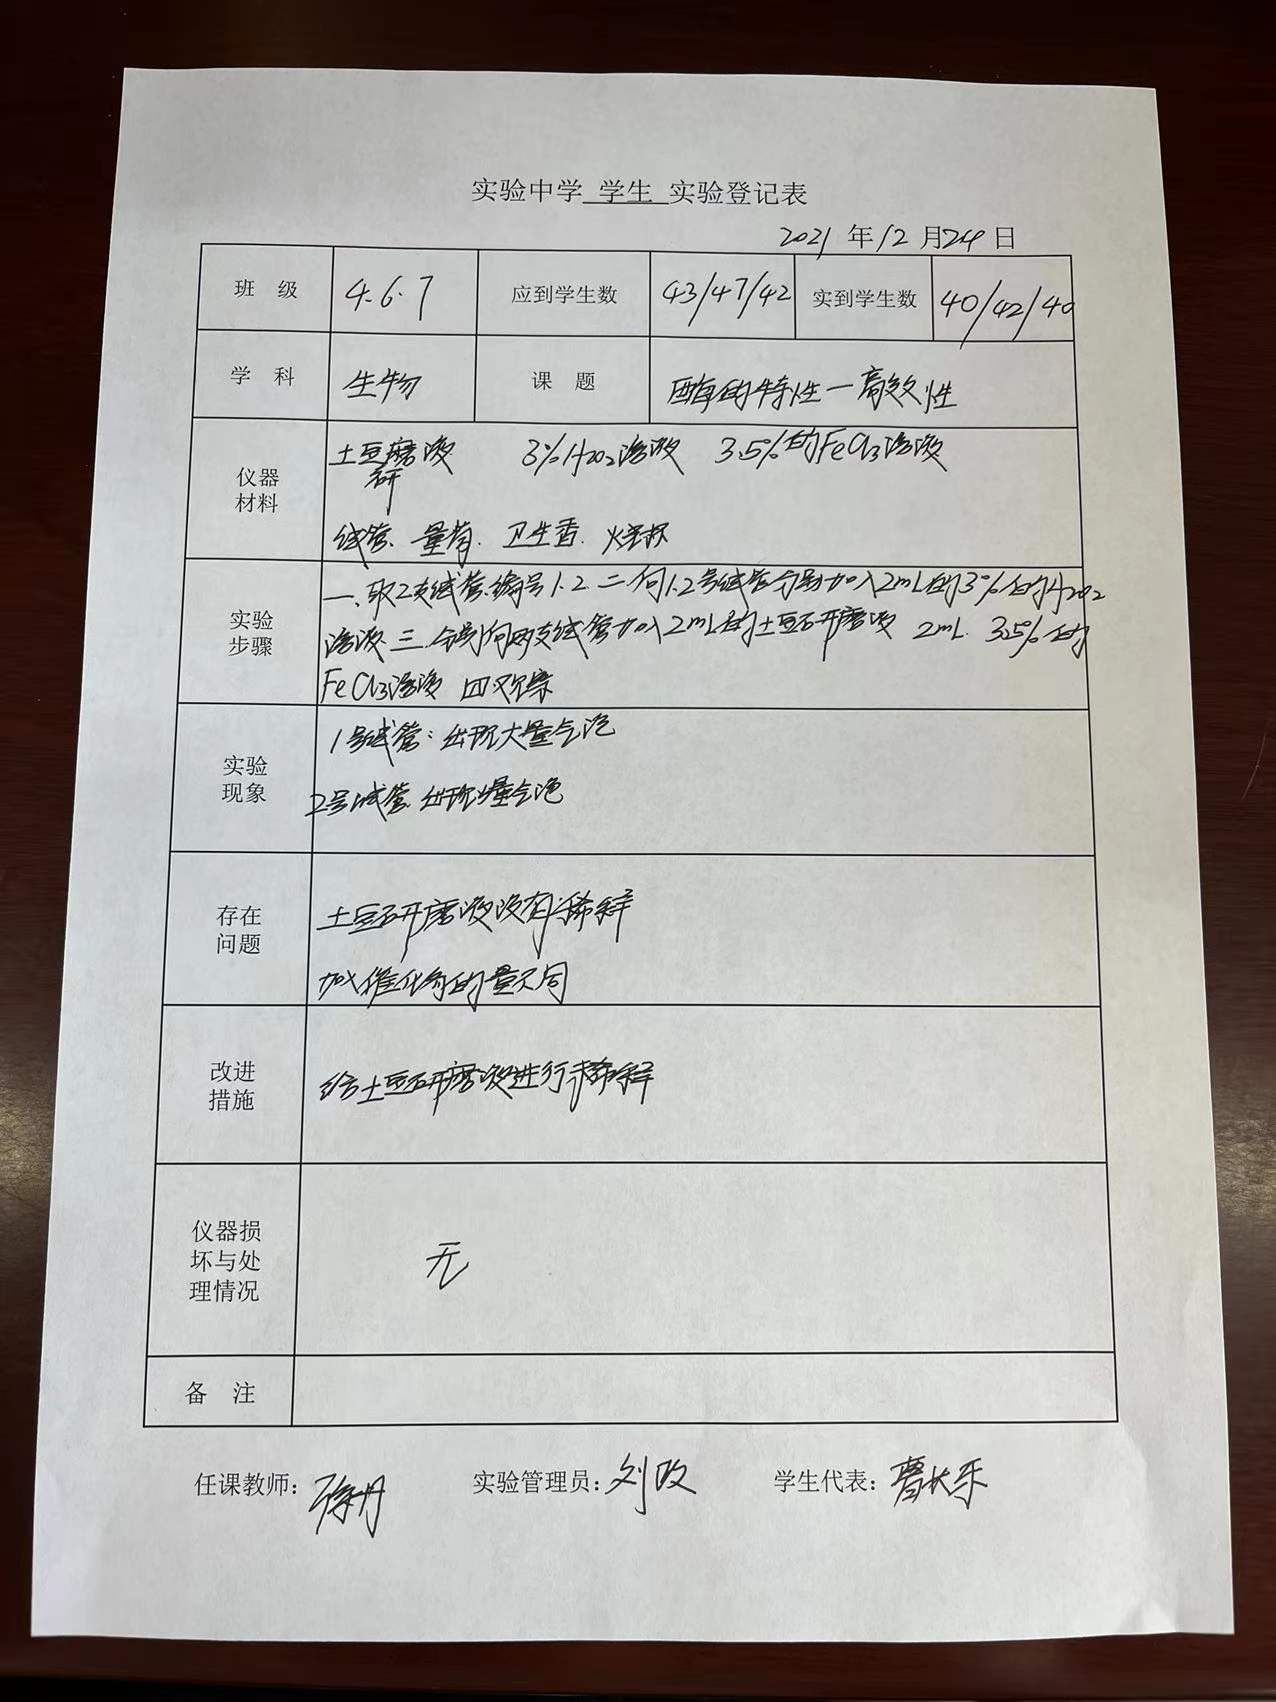 实验中学 学生 实验登记表
2021 年 12 月 24 日
班 级 4.6.7 应到学生数 43/47/42 实到学生数 40/42/40
学 科 生物 课 题 酶的特性—高效性
仪器材料
土豆研磨液 3%H2O2溶液 3.5%的FeCl3溶液
试管、量筒、卫生香、火柴、烧杯
实验步骤
一、取2支试管.编号1.2 二、向1.2号试管分别加入2mL的3%的H2O2
溶液 三、分别向两支试管加入2mL的土豆研磨液 2mL 3.5%的
FeCl3溶液 四观察
实验现象
1号试管：出现大量气泡
2号试管.出现少量气泡
存在问题
土豆研磨液没有稀释
加入催化剂的量不同
改进措施
给土豆研磨液进行稀释
仪器损坏与处理情况
无
备 注
任课教师：徐丹 实验管理员：刘政 学生代表：曹长乐